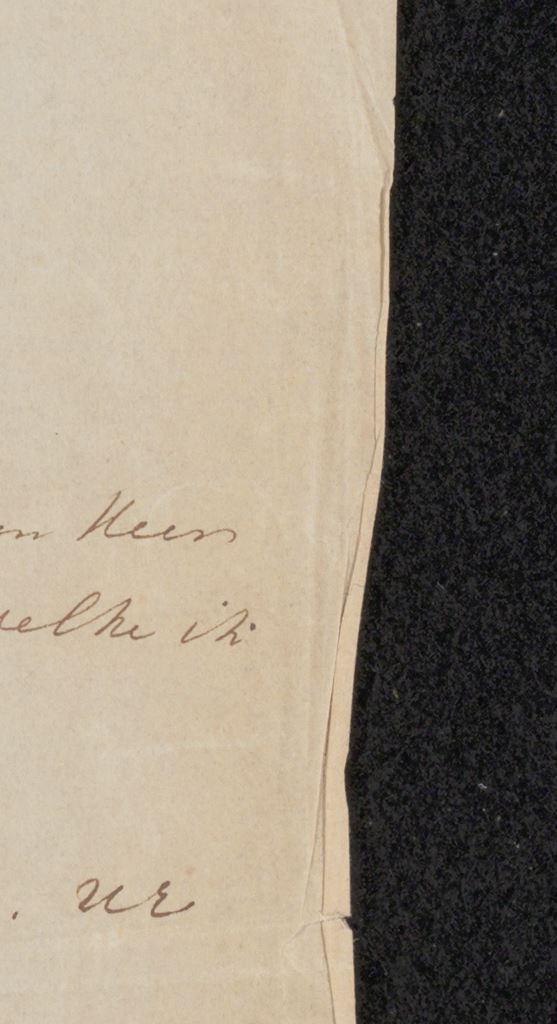 en Heer
welke ik
. UE